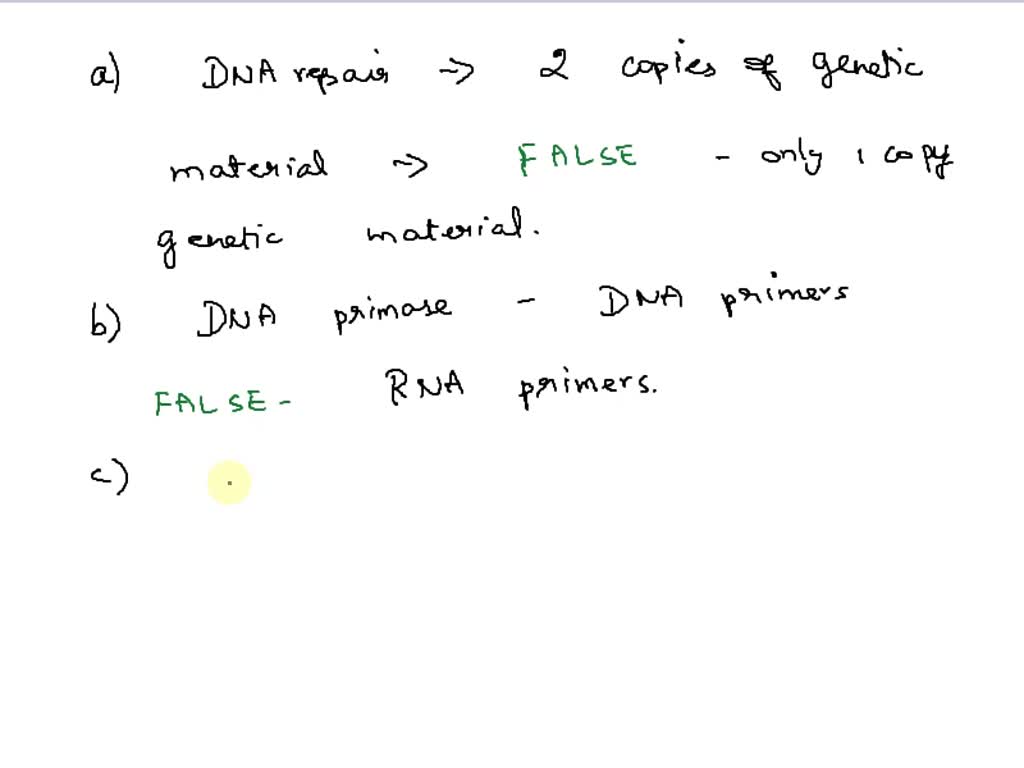 a) DNA repair → 2 copies of genetic
material → FALSE - only 1 copy
genetic material.
b) DNA primase - DNA primers
FALSE - RNA primers.
c)